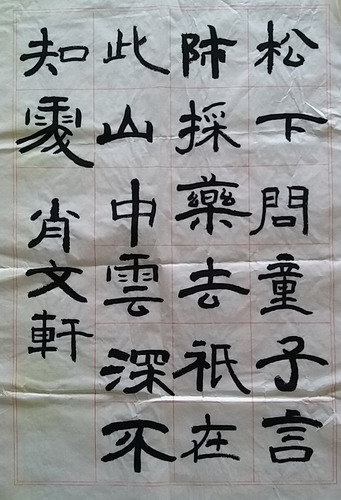 松下問童子言
師採藥去祇在
此山中雲深不
知處
肖文軒